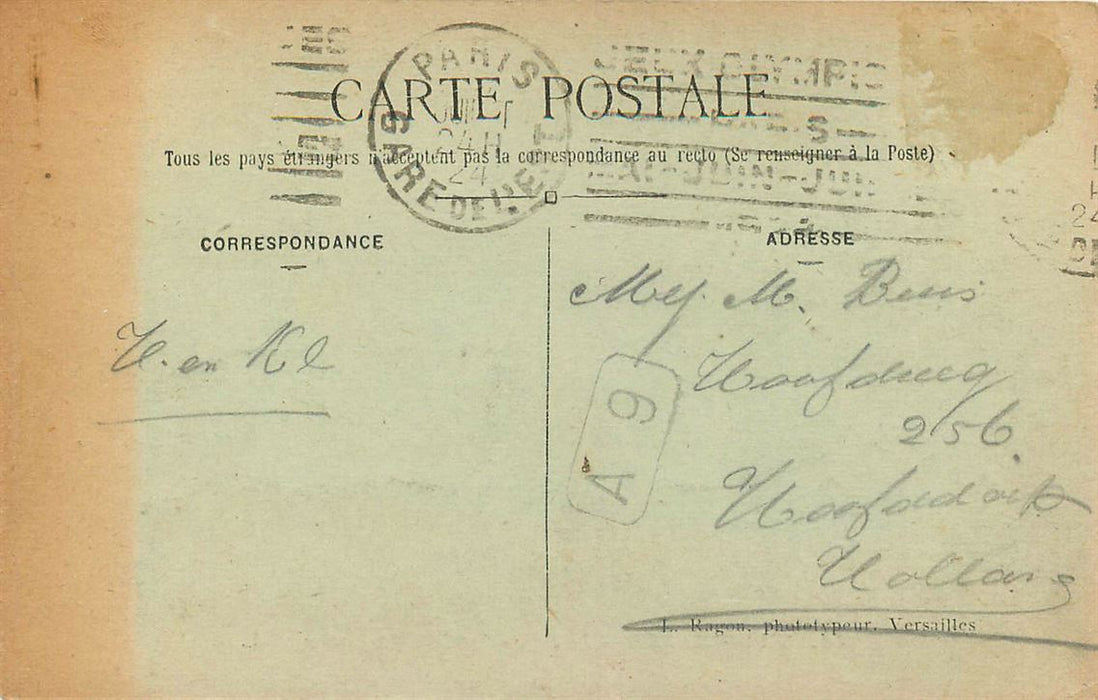 PARIS
GARE DE L'EST
24
JEUX OLYMPIC
PARIS
MAI-JUIN-JUIL
CARTE POSTALE
Tous les pays étrangers n'acceptent pas la correspondance au recto (Se renseigner à la Poste)
CORRESPONDANCE
ADRESSE
H. en Kl
Mej. M. Buis
Hoofdweg
256.
Hoofddorp
Holland
A 9
L. Ragon, phototypeur, Versailles